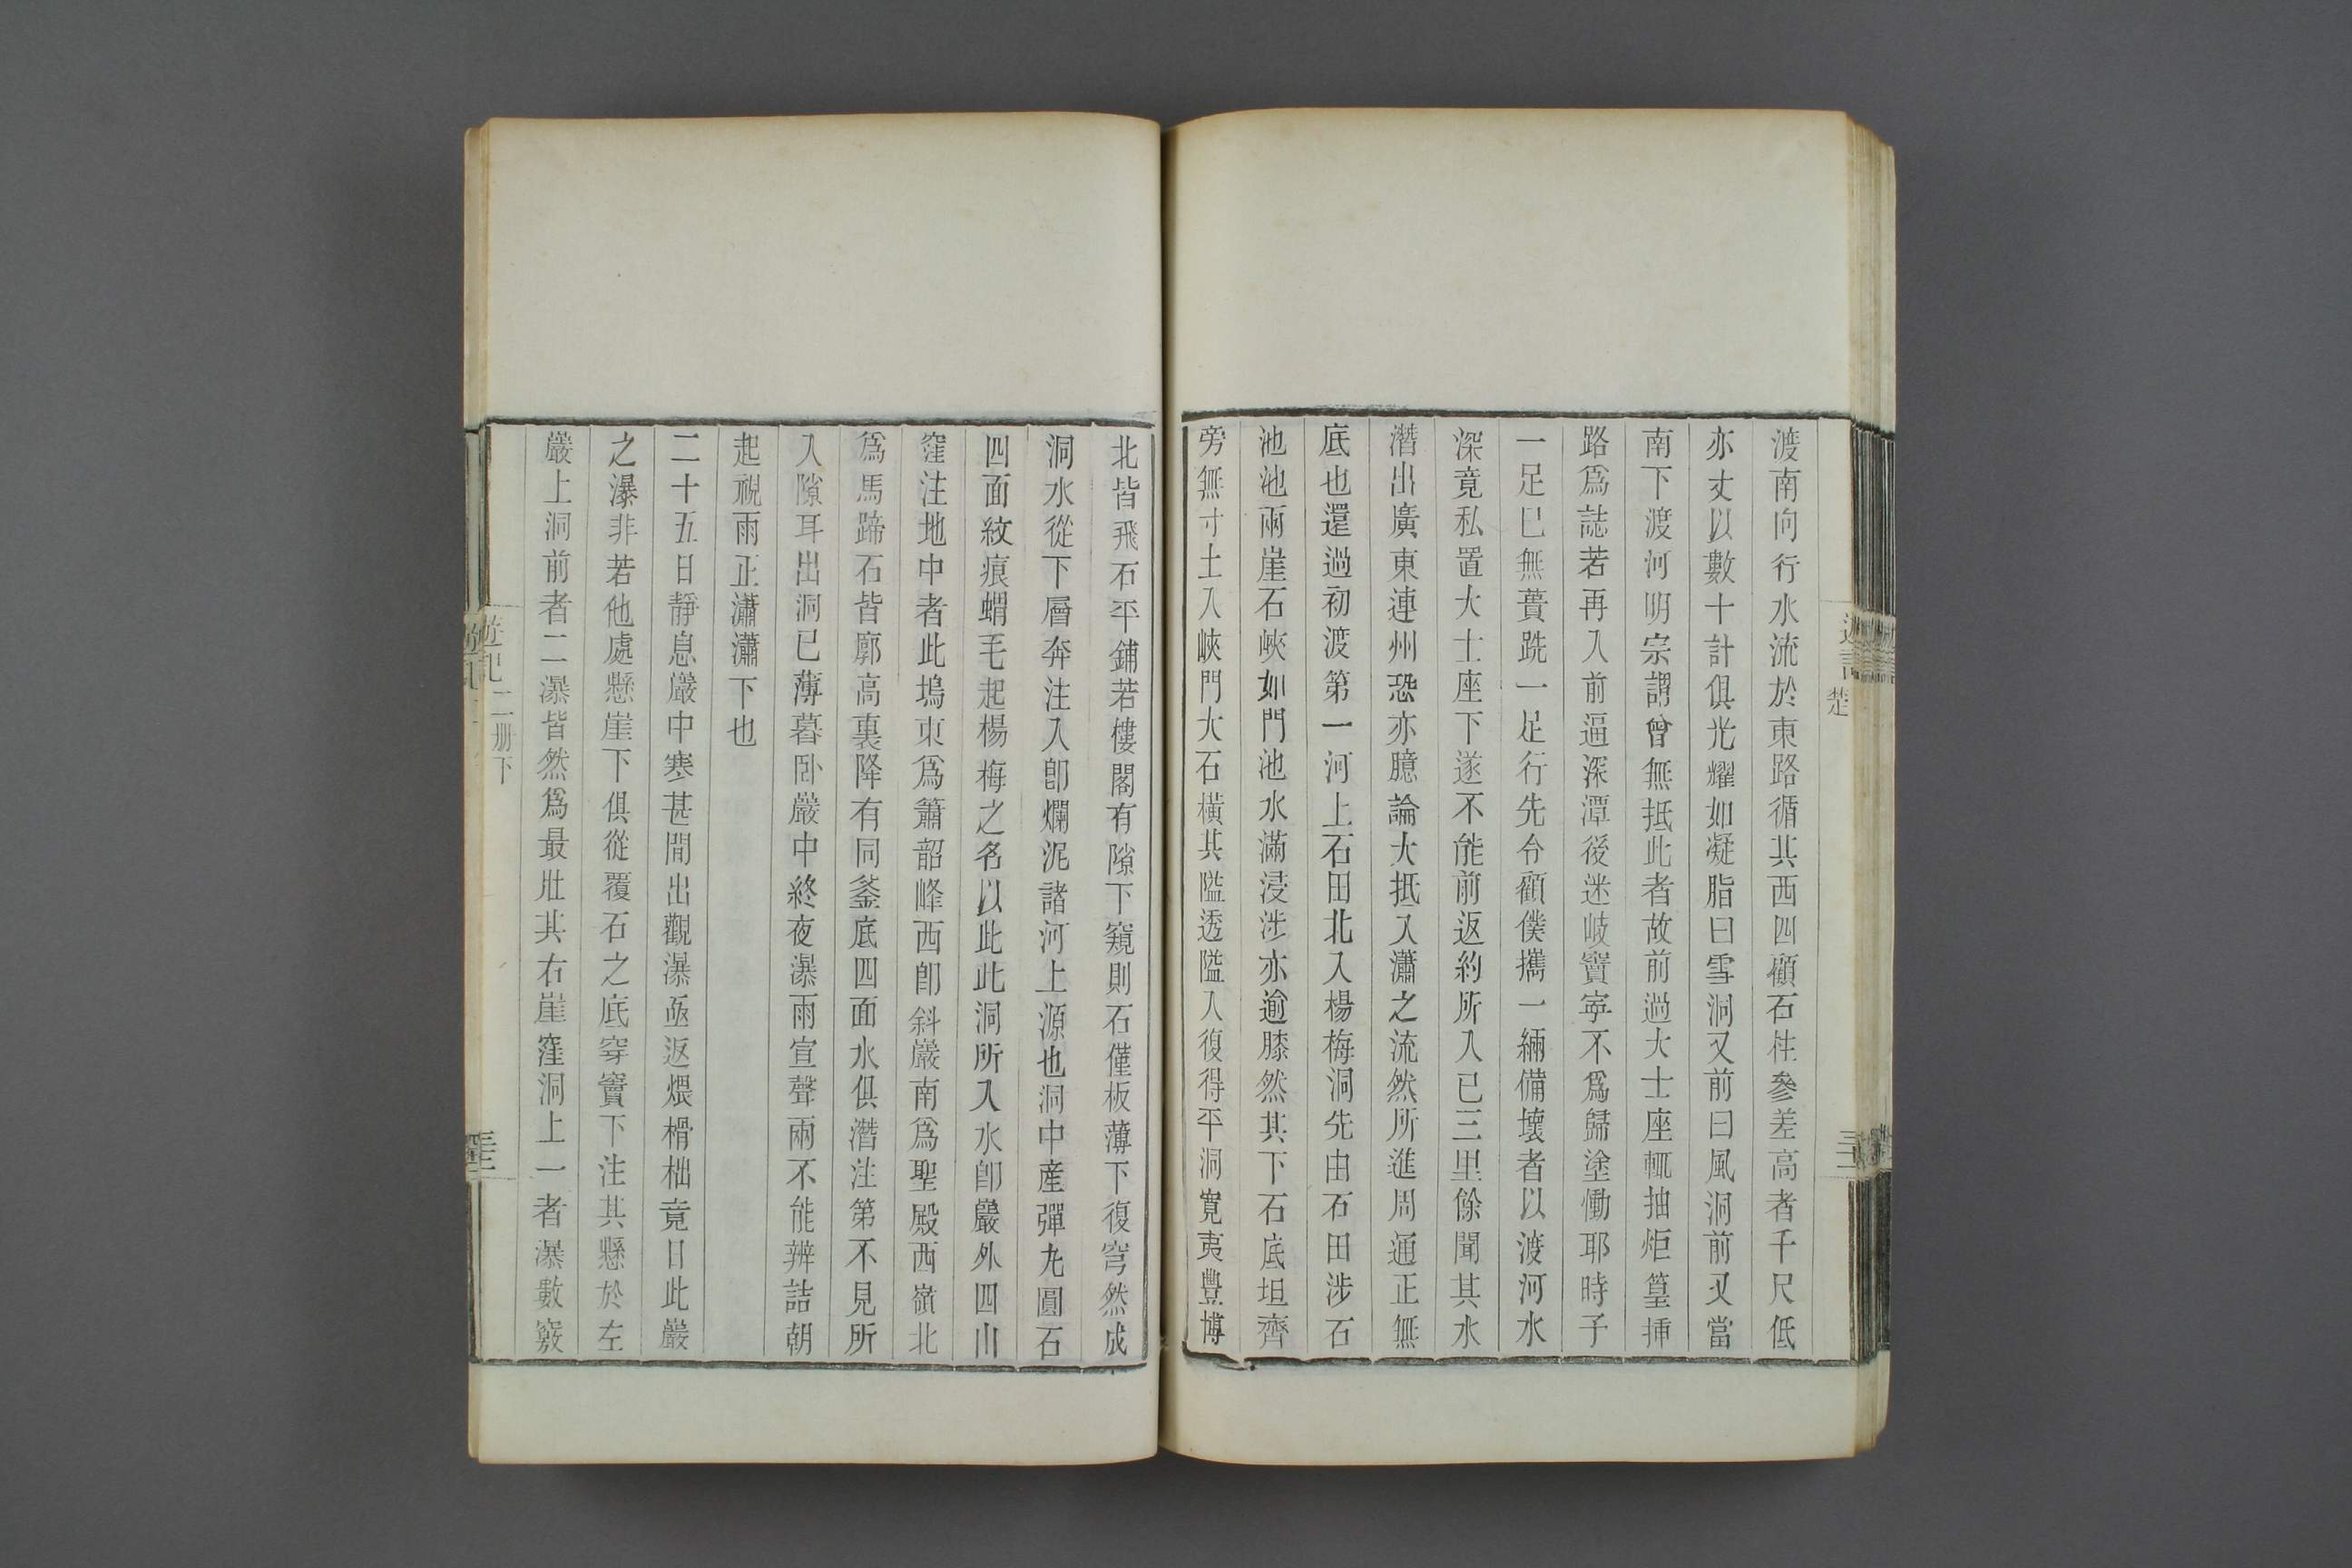 渡南向行水流於東路循其西四顧石柱參差高者千尺低
亦丈以數十計俱光耀如凝脂曰雪洞又前曰風洞前又當
南下渡河明宗謂曾無抵此者故前過大士座輒抽炬篁挿
路爲誌若再入前逼深潭後迷岐竇寧不爲歸塗慟耶時予
一足已無蕢跣一足行先令顧僕攜一緉備壞者以渡河水
深竟私置大士座下遂不能前返約所入已三里餘聞其水
潛出廣東連州恐亦臆論大抵入瀟之流然所進周通正無
底也還過初渡第一河上石田北入楊梅洞先由石田涉石
池池兩崖石峽如門池水滿浸涉亦逾膝然其下石底坦齊
旁無寸土入峽門大石橫其隘透隘入復得平洞寬夷豐博
北皆飛石平鋪若樓閣有隙下窺則石僅板薄下復穹然成
洞水從下層奔注入卽爛泥諸河上源也洞中産彈丸圓石
四面紋痕蝟毛起楊梅之名以此此洞所入水卽巖外四山
窪注地中者此塢東爲簫韶峰西卽斜巖南爲聖殿西嶺北
爲馬蹄石皆廓高裏降有同釜底四面水俱潛注第不見所
入隙耳出洞已薄暮卧巖中終夜瀑雨宣聲兩不能辨詰朝
起視雨正瀟瀟下也
二十五日靜息巖中寒甚閒出觀瀑亟返煨榾柮竟日此巖
之瀑非若他處懸崖下俱從覆石之底穿竇下注其懸於左
巖上洞前者二瀑皆然爲最壯其右崖窪洞上一者瀑數竅
遊記 二册下